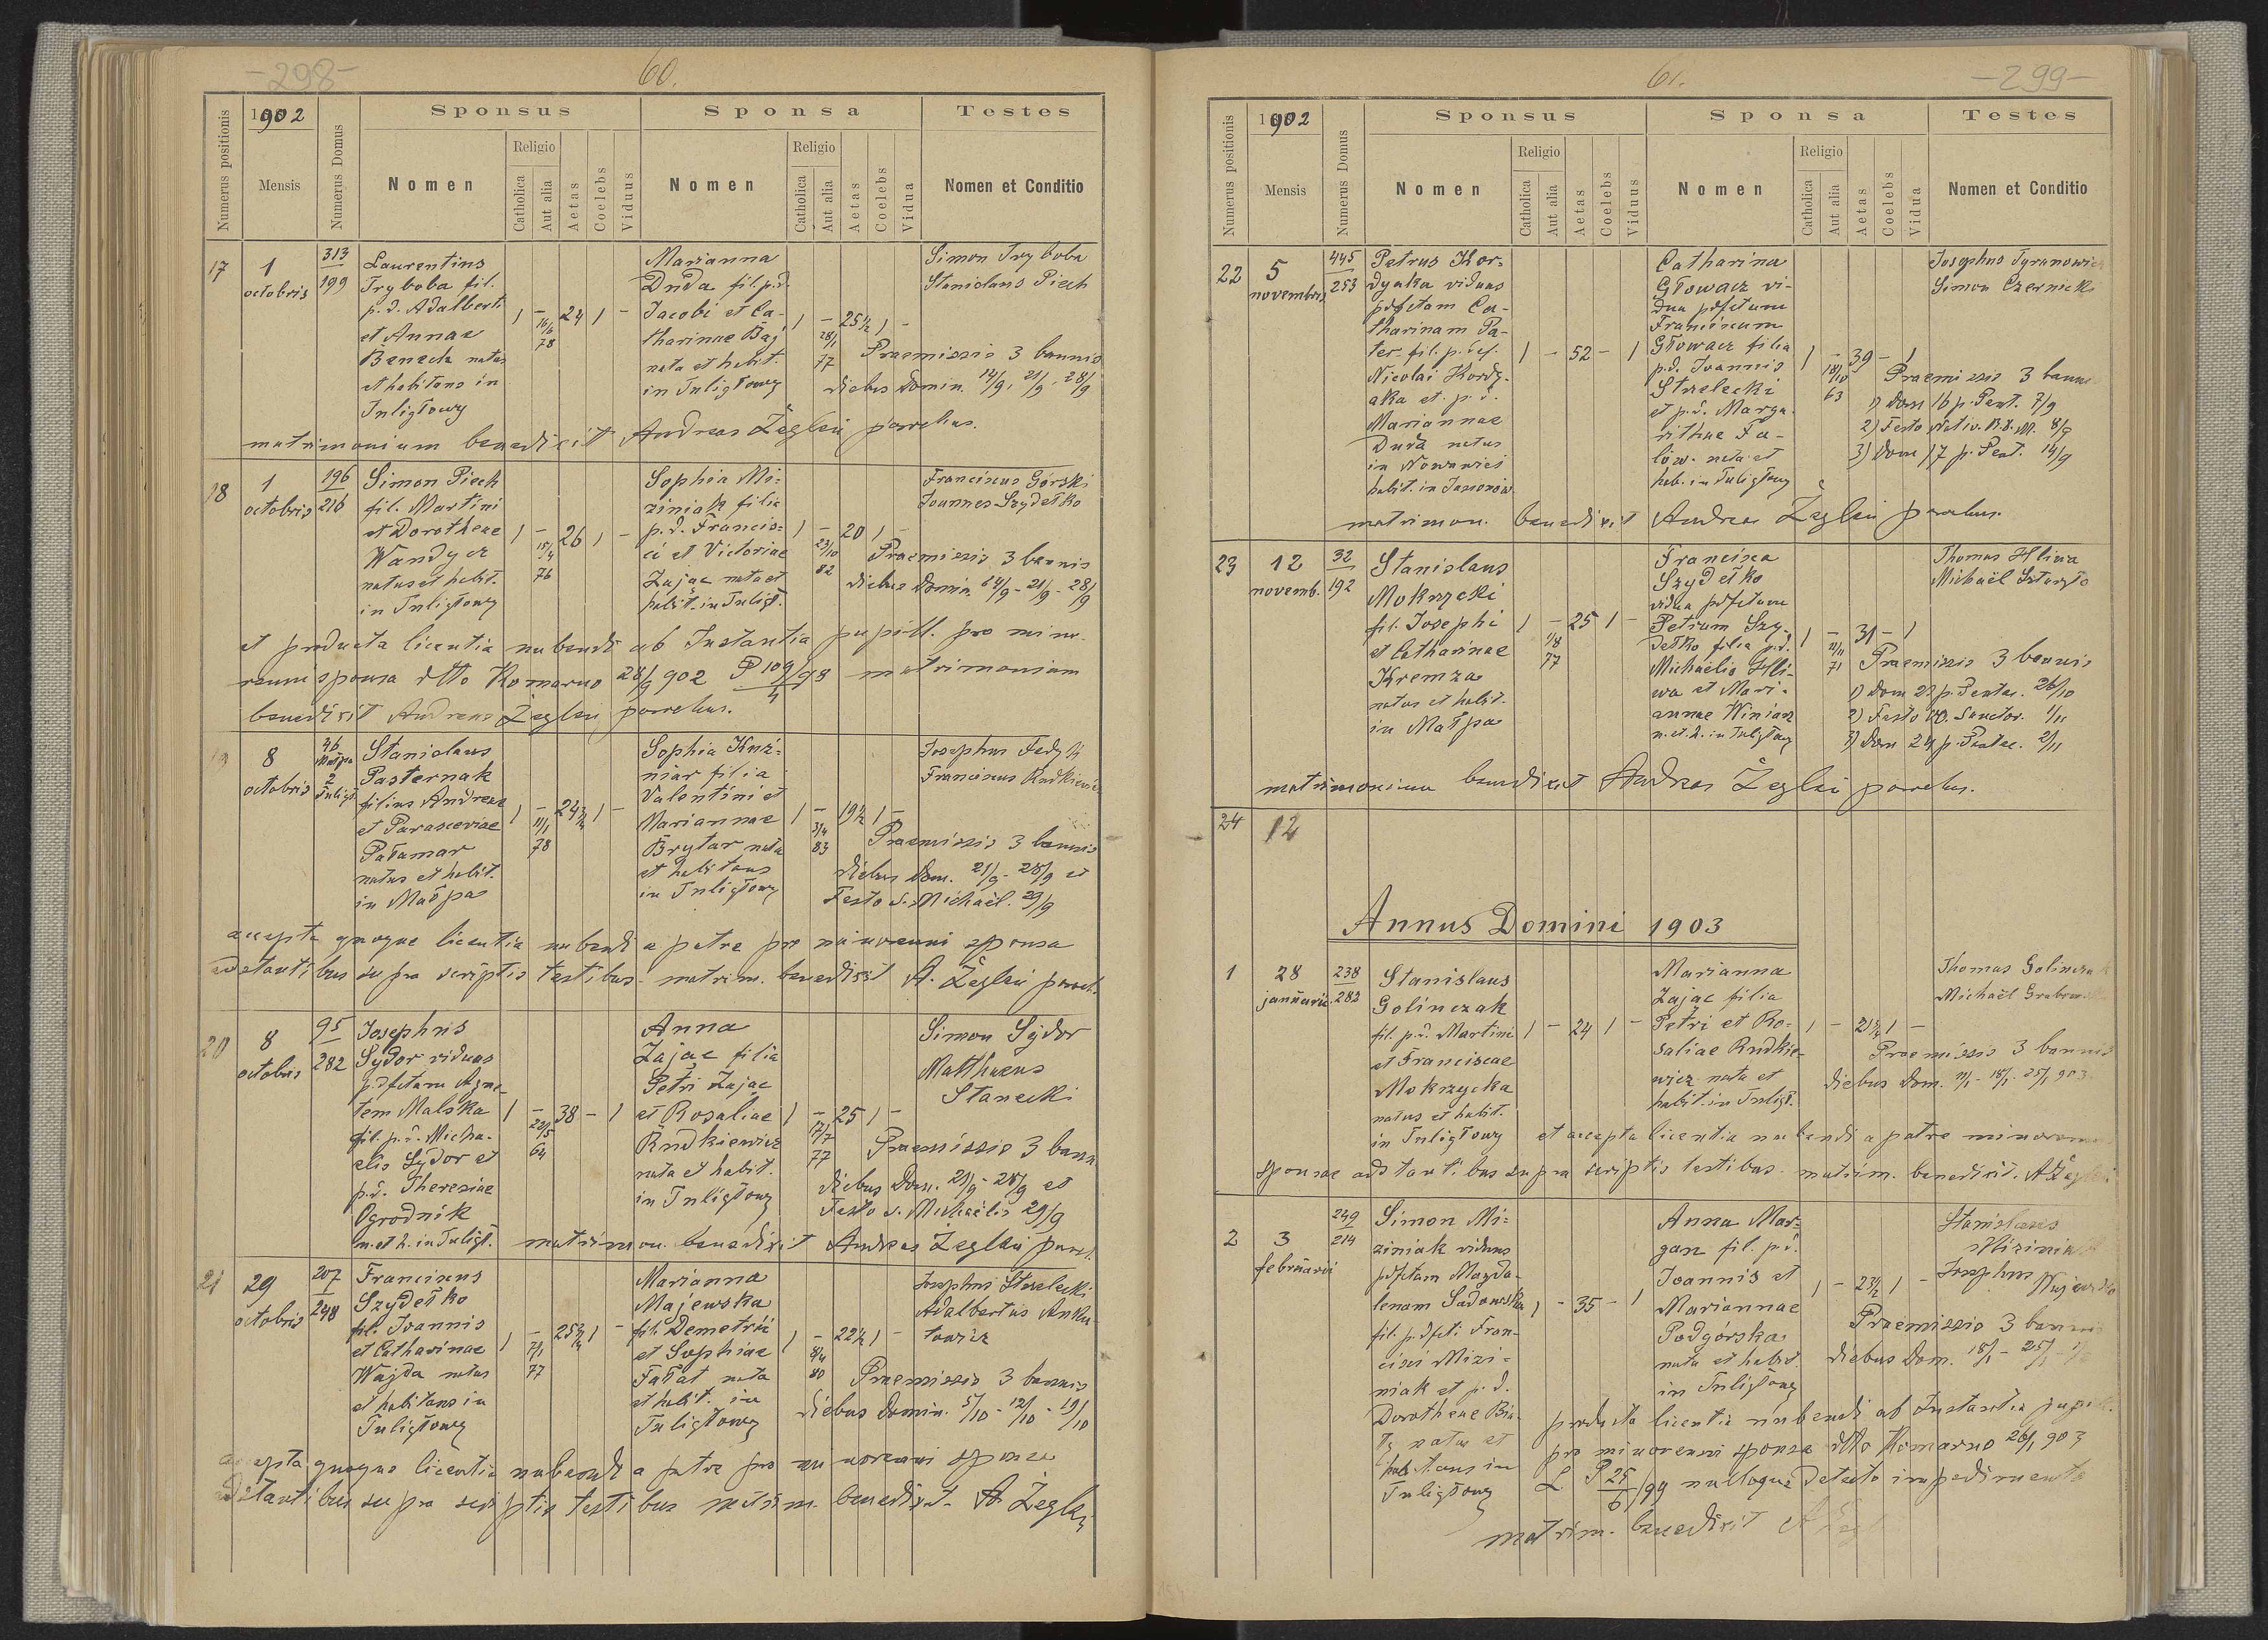 -298-
60.
1902
Sponsus
Sponsa
Testes
Numerus positionis
Mensis
Numerus Domus
Nomen
Religio
Catholica
Aut alia
Aetas
Coelebs
Viduus
Nomen
Religio
Catholica
Aut alia
Aetas
Coelebs
Vidua
Nomen et Conditio
17
1
octobris
313
199
Laurentius
Tryboba fil.
p. d. Adalberti
et Annae
Benech natus
et habitans in
Tuligłowy
1 - 24 1 -
16/6
78
Marianna
Duda fil. p. d.
Jacobi et Ca-
tharinae Bąj
nata et habit.
in Tuligłowy
1 - 25 1/2 1 -
28/1
77
Simon Tryboba
Stanislaus Piech
Praemissis 3 bannis
diebus Domin. 14/9, 21/9, 28/9
matrimonium benedixit Andreas Żeglen parochus.
18
1
octobris
196
216
Simon Piech
fil. Martini
et Dorotheae
Wandycz
natus et habit.
in Tuligłowy
1 - 26 1 -
15/4
76
Sophia Mi-
ziniak filia
p. d. Francis-
ci et Victoriae
Zając nata et
habit. in Tuligł.
1 - 20 1 -
23/10
82
Franciscus Górski
Joannes Szydełko
Praemissis 3 bannis
diebus Domin. 14/9 - 21/9 - 28/9
et producta licentia nubendi ab Instantia pupill. pro mino-
renni sponsa dtto Komarno 28/9 902 P 109/4 /98 matrimonium
benedixit Andreas Żeglen parochus.
19
8
octobris
36
Małpa
2
Tuligł.
Stanislaus
Pasternak
filius Andreae
et Parasceviae
Pałamar
natus et habit.
in Małpa
1 - 24 3/4 1 -
11/1
78
Sophia Kuź-
niar filia
Valentini et
Mariannae
Brytar nata
et habitans
in Tuligłowy
1 - 19 1/2 1 -
3/4
83
Josephus Fedyk
Franciscus Rudkiewicz
Praemissis 3 bannis
diebus Dom. 21/9 - 28/9 et
Festo s. Michaël. 29/9
accepta quoque licentia nubendi a patre pro minorenni sponsa
adstantibus supra scriptis testibus. matrim. benedixit A. Żeglen paroch.
20
8
octobris
95
282
Josephus
Sydor viduus
p. dfctam Agne-
tem Malska
fil. p. d. Micha-
elis Sydor et
p. d. Theresiae
Ogrodnik
n. et h. in Tuligł.
1 - 38 - 1
22/5
64
Anna
Zając filia
Petri Zając
et Rosaliae
Rudkiewicz
nata et habit.
in Tuligłowy
1 - 25 1 -
17/7
77
Simon Sydor
Matthaeus
Stanecki
Praemissis 3 bann.
diebus Dom. 21/9 - 28/9 et
Festo s. Michaëlis 29/9
matrimon. benedixit Andreas Żeglen paroch.
21
29
octobris
207
248
Franciscus
Szydełko
fil. Joannis
et Catharinae
Wajda natus
et habitans in
Tuligłowy
1 - 25 3/4 1 -
7/1
77
Marianna
Majewska
fil. Demetrii
et Sophiae
Fałat nata
et habit. in
Tuligłowy
1 - 22 1/2 1 -
8/4
80
Josephus Strzelecki
Adalbertus Anku-
towicz
Praemissis 3 bannis
diebus Domin. 5/10 - 12/10 - 19/10
accepta quoque licentia nubendi a patre pro minorenni sponsa
adstantibus supra scriptis testibus matrim. benedixit A. Żeglen
61.
-299-
1902
Sponsus
Sponsa
Testes
Numerus positionis
Mensis
Numerus Domus
Nomen
Religio
Catholica
Aut alia
Aetas
Coelebs
Viduus
Nomen
Religio
Catholica
Aut alia
Aetas
Coelebs
Vidua
Nomen et Conditio
22
5
novembris
445
253
Petrus Kor-
dyaka viduus
p dfctam Ca-
tharinam Pa-
ter. fil. p. def.
Nicolai Kordy-
aka et p. d.
Mariannae
Duda natus
in Nowawieś
habit. in Jassonów.
1 - 52 - 1
Catharina
Głowacz vi-
dua pdfctum
Franciscum
Głowacz filia
p. d. Joannis
Strzelecki
et p. d. Marga-
rithae Fa-
lów. nata et
hab. in Tuligłowy
1 - 39 - 1
18/10
63
Josephus Tyranowicz
Simon Czernicki
Praemissis 3 bann.
1) Dom 16 p. Pent. 7/9
2) Festo Nativ. B. V. M. 8/9
3) Dom 17 p. Pent. 14/9
matrimon. benedixit Andreas Żeglen parochus.
23
12
novemb.
32
192
Stanislaus
Mokrzycki
fil. Josephi
et Catharinae
Kremza
natus et habit.
in Małpa
1 - 25 1 -
1/8
77
Francisca
Szydełko
vidua pdfctum
Petrum Szy-
dełko filia p. d.
Michaëlis Hli-
wa et Mari-
annae Winiarz
n. et h. in Tuligłowy
1 - 31 - 1
21/11
71
Thomas Hliwa
Michaël Szturyło
Praemissis 3 bannis
1) Dom 23 p. Pentec. 26/10
2) Festo OO. Sanctor. 1/11
3) Dom 24 p. Pentec. 2/11
matrimonium benedixit Andreas Żeglen parochus.
24
12
Annus Domini 1903
1
28
januarii
238
282
Stanislaus
Golinczak
fil. p. d. Martini
et Franciscae
Mokrzycka
natus et habit.
in Tuligłowy
1 - 24 1 -
Marianna
Zając filia
Petri et Ro-
saliae Rudkie-
wicz nata et
habit. in Tuligł.
1 - 21 3/4 1 -
Thomas Golinczak
Michaël Grabowski
Praemissis 3 bannis
diebus Dom. 11/1 - 18/1 - 25/1 903
et accepta licentia nubendi a patre minorennis
sponsae adstantibus supra scriptis testibus. matrim. benedixit. A Żeglen
2
3
februarii
249
214
Simon Mi-
ziniak viduus
pdfctam Magda-
lenam Sadowska
fil. p. dfcti Fran-
cisci Mizi-
niak et p. d.
Dorotheae Bia-
ły natus et
habitans in
Tuligłowy
1 - 35 - 1
Anna Mar-
gan fil. p. d.
Joannis et
Mariannae
Podgórska
nata et habit.
in Tuligłowy
1 - 23 1/2 1 -
Stanislaus
Miziniak
Josephus
Praemissis 3 bannis
diebus Dom. 18/1 - 25/1 -
producta licentia nubendi ab Instantia pupill.
pro minorenni sponsa dtto Komarno 26/1 903
L P 25/6 /99 nulloque detecto impedimento
matrim. benedixit A Żegl